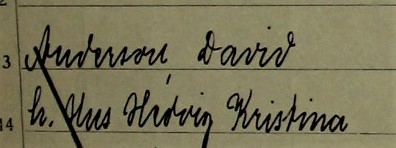 3 Anderson, David
14 h. Hus Hedvig Kristina